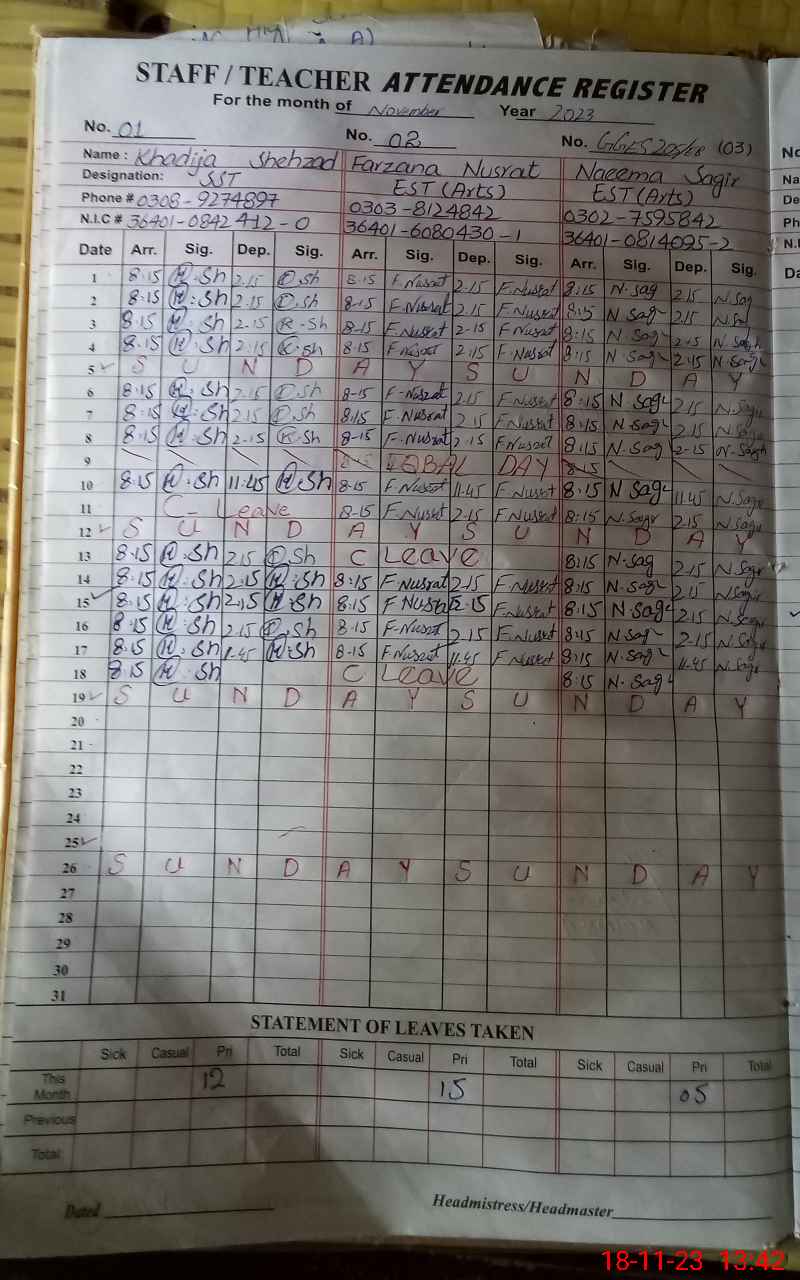 STAFF / TEACHER ATTENDANCE REGISTER
For the month of November Year 2023
No. 01 No. 02 No. GGES 205/EB (03)
Name : Khadija Shehzad Farzana Nusrat Naeema Sagir
Designation: SST EST (Arts) EST (Arts)
Phone # 0308-9274897 0303-8124842 0302-7595842
N.I.C # 36401-0842412-0 36401-6080430-1 36401-0814095-2
Date Arr. Sig. Dep. Sig. Arr. Sig. Dep. Sig. Arr. Sig. Dep. Sig.
1 8.15 K.Sh 2.15 K.Sh 8.15 F.Nusrat 2.15 F.Nusrat 8:15 N.Sag 2.15 N.Sag
2 8.15 K.Sh 2.15 K.Sh 8-15 F.Nusrat 2.15 F.Nusrat 8:15 N.Sag 2.15 N.Sag
3 8.15 K.Sh 2-15 K-Sh 8-15 F.Nusrat 2-15 F.Nusrat 8:15 N.Sag 2.15 N.Sagir
4 8.15 K.Sh 2.15 K-Sh 8.15 F.Nusrat 2.15 F.Nusrat 8:15 N.Sag 2.15 N.Sagir
5 S U N D A Y S U N D A Y
6 8.15 K.Sh 2.15 K.Sh 8-15 F-Nusrat 2.15 F.Nusrat 8:15 N Sag 2.15 N.Sagir
7 8.15 K.Sh 2.15 K.Sh 8:15 F.Nusrat 2.15 F.Nusrat 8:15 N.Sag 2.15 N.Sagir
8 8.15 K.Sh 2-15 K.Sh 8-15 F.Nusrat 2.15 F.Nusrat 8:15 N.Sag 2-15 N.Sagir
9 8.15 IQBAL DAY 8.15
10 8.15 K.Sh 11.45 K.Sh 8-15 F.Nusrat 11.45 F.Nusrat 8.15 N Sag 11.45 N.Sagir
11 C- Leave 8-15 F.Nusrat 2.15 F.Nusrat 8:15 N.Sagir 2.15 N.Sagir
12 S U N D A Y S U N D A Y
13 8.15 K.Sh 2.15 K.Sh C Leave 8:15 N.Sag 2.15 N.Sagir
14 8.15 K.Sh 2.15 K.Sh 8:15 F.Nusrat 2.15 F.Nusrat 8:15 N.Sag 2.15 N.Sagir
15 8.15 K.Sh 2.15 K.Sh 8.15 F Nusrat 2.15 F.Nusrat 8.15 N.Sag 2.15 N.Sagir
16 8.15 K.Sh 2.15 K.Sh 8.15 F.Nusrat 2.15 F.Nusrat 8:15 N.Sag 2.15 N.Sagir
17 8.15 K.Sh 11.45 K.Sh 8-15 F.Nusrat 11.45 F.Nusrat 8:15 N.Sag 11.45 N.Sagir
18 8.15 K.Sh C Leave 8.15 N.Sag
19 S U N D A Y S U N D A Y
20
21
22
23
24
25
26 S U N D A Y S U N D A Y
27
28
29
30
31
STATEMENT OF LEAVES TAKEN
Sick Casual Pri Total Sick Casual Pri Total Sick Casual Pri Total
This Month 12 15 05
Previous
Total
Dated
Headmistress/Headmaster
18-11-23 13:42